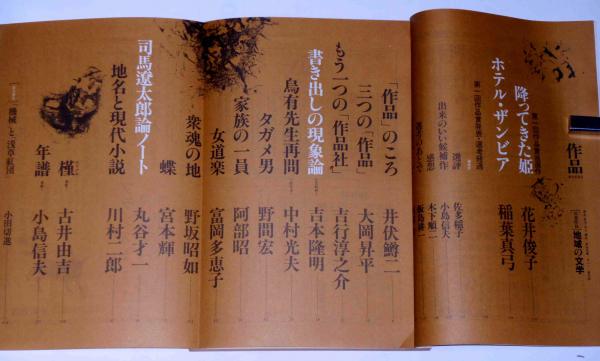 作品
地域の文学
第一回作品賞受賞作
降ってきた姫
花井俊子
ホテル・ザンビア
稲葉真弓
第一回作品賞発表・選考経過
選評
出来のいい候補作
佐多稲子
感想
小島信夫
木下順二
「作品」のころ
井伏鱒二
三つの「作品」
大岡昇平
もう一つの「作品社」
吉行淳之介
書き出しの現象論
吉本隆明
烏有先生再問
中村光夫
タガメ男
野間宏
家族の一員
阿部昭
女道楽
富岡多恵子
衆魂の地
野坂昭如
蝶
宮本輝
司馬遼太郎論ノート
丸谷才一
地名と現代小説
川村二郎
槿
古井由吉
年譜
小島信夫
「機械」と「浅草紅団」
小田切進